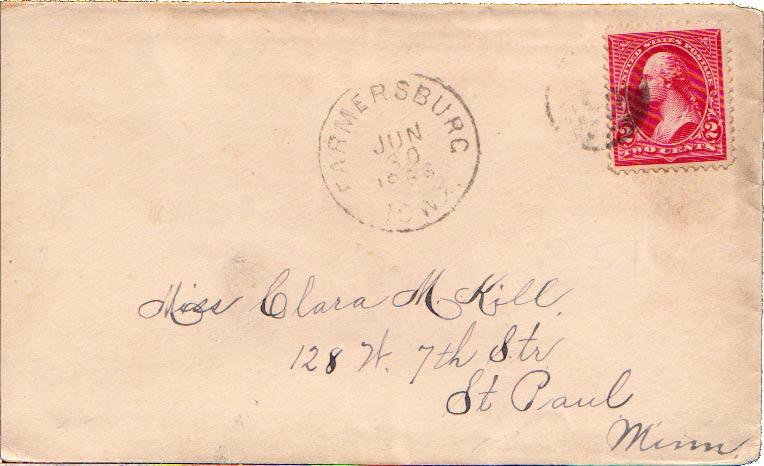 UNITED STATES POSTAGE
2 2
TWO CENTS
FARMERSBURG
JUN
IOWA.
Miss Clara M. Kill.
128 W. 7th Str
St Paul
Minn.